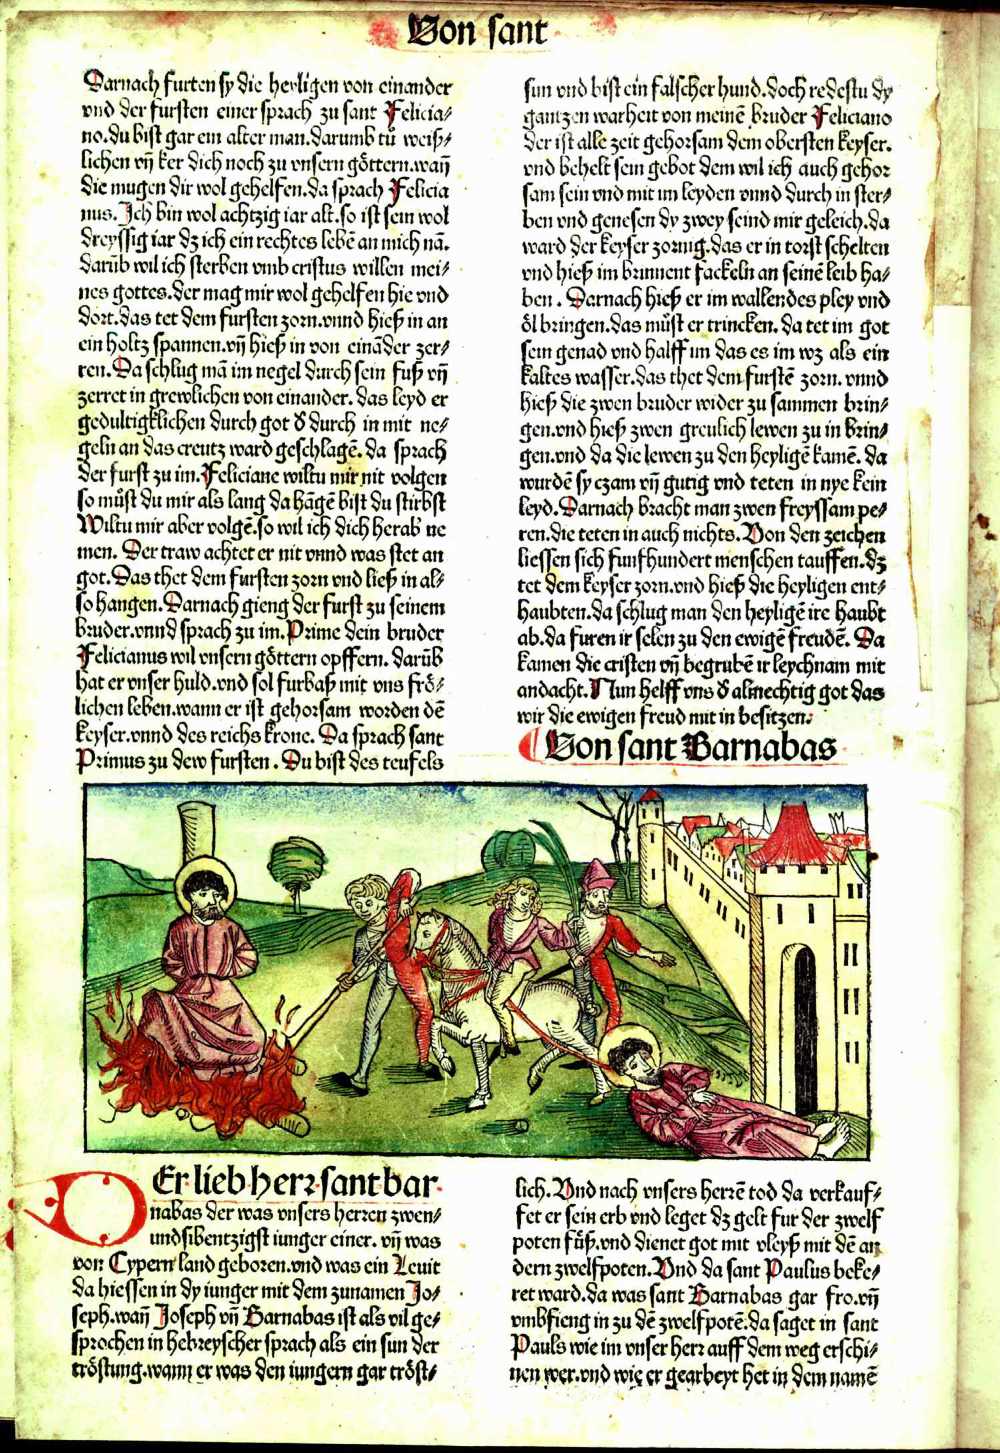 Von sant
Darnach furten sy die heyligen von einander
vnd der fursten einer sprach zu sant Felicia-
no.du bist gar ein alter man.darumb tů weiß-
lichen vn̄ ker dich noch zu vnsern göttern.wan̄
die mugen dir wol gehelfen.da sprach Felicia
nus.Ich bin wol achtzig iar alt.so ist sein wol
dreyssig iar dz ich ein rechtes lebē an mich nā.
darūb wil ich sterben vmb cristus willen mei-
nes gottes.der mag mir wol gehelfen hie vnd
dort.das tet dem fursten zorn.vnnd hieß in an
ein holtz spannen.vn̄ hieß in von eināder zer-
ren.Da schlug mā im negel durch sein fuß vn̄
zerret in grewlichen von einander. das leyd er
gedultigklichen durch got d̕ durch in mit ne-
geln an das creutz ward geschlagē. da sprach
der furst zu im.Feliciane wiltu mir nit volgen
so můst du mir als lang da hāgē bist du stirbst
Wiltu mir aber volgē.so wil ich dich herab ne
men. Der traw achtet er nit vnnd was stet an
got.Das thet dem fursten zorn vnd ließ in al-
so hangen.Darnach gieng der furst zu seinem
bruder.vnnd sprach zu im.Prime dein bruder
Felicianus wil vnsern göttern opffern. darūb
hat er vnser huld.vnd sol furbaß mit vns frö-
lichen leben.wann er ist gehorsam worden dē
keyser.vnnd des reichs krone. Da sprach sant
Primus zu dew fursten. Du bist des teufels
sun vnd bist ein falscher hund.doch redestu dy
gantzen warheit von meinē bruder Feliciano
der ist alle zeit gehorsam dem obersten keyser.
vnd behelt sein gebot dem wil ich auch gehor
sam sein vnd mit im leyden vnnd durch in ster-
ben vnd genesen dy zwey seind mir geleich.da
ward der keyser zornig.das er in torst schelten
vnd hieß im brinnent fackeln an seinē leib ha-
ben. Darnach hieß er im wallendes pley vnd
öl bringen.das můst er trincken. da tet im got
sein genad vnd halff im das es im wz als ein
kaltes wasser.das thet dem furstē zorn. vnnd
hieß die zwen bruder wider zu sammen brin-
gen.vnd hieß zwen greulich lewen zu in brin-
gen.vnd da die lewen zu den heyligē kamē. da
wurdē sy czam vn̄ gutig vnd teten in nye kein
leyd.Darnach bracht man zwen freyssam pe-
ren.die teten in auch nichts.Von den zeichen
liessen sich funfhundert menschen tauffen.dz
tet dem keyser zorn.vnd hieß die heyligen ent-
haubten.da schlug man den heyligē ire haubt
ab.da furen ir selen zu den ewigē freudē. Da
kamen die cristen vn̄ begrubē ir leychnam mit
andacht.Nun helff vns d̕ almechtig got das
wir die ewigen freud mit in besitzen.
Von sant Barnabas
DEr lieb herr sant bar
nabas der was vnsers herren zwen-
undsibentzigst iunger einer. vn̄ was
von Cypern land geboren.vnd was ein Leuit
da hiessen in dy iunger mit dem zunamen Jo-
seph.wan̄ Joseph vn̄ Barnabas ist als vil ge-
sprochen in hebreyscher sprach als ein sun der
tröstung.wann er was den iungern gar tröst-
lich.Vnd nach vnsers herrē tod da verkauf-
fet er sein erb vnd leget dz gelt fur der zwelf
poten fůß.vnd dienet got mit vleyß mit dē an
dern zwelfpoten.Vnd da sant Paulus beke-
ret ward.da was sant Barnabas gar fro.vn̄
vmbfieng in zu dē zwelfpotē.da saget in sant
Pauls wie im vnser herr auff dem weg erschi-
nen wer.vnd wie er gearbeyt het in dem namē